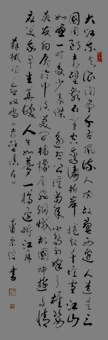 大江东去浪淘尽千古风流人物故垒西边人道是三
国周郎赤壁乱石穿空惊涛拍岸卷起千堆雪江山
如画一时多少豪杰遥想公瑾当年小乔初嫁了雄姿
英发羽扇纶巾谈笑间樯橹灰飞烟灭故国神游多情
应笑我早生华发人生如梦一樽还酹江月
苏轼念奴娇赤壁怀古
书